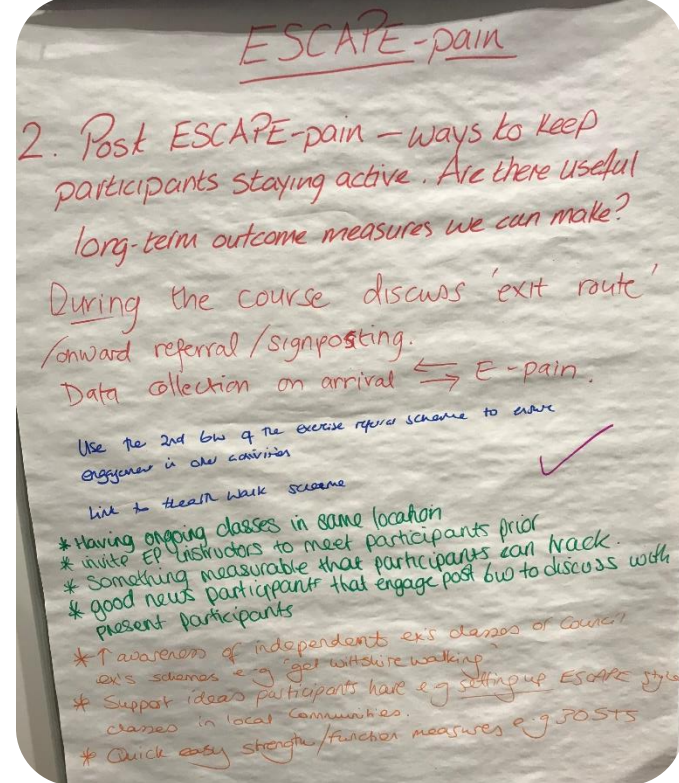 ESCAPE-pain
2. Post ESCAPE-pain - ways to keep
participants staying active. Are there useful
long-term outcome measures we can make?
During the course discuss 'exit route'
/onward referral/signposting.
Data collection on arrival ⇆ E-pain.
Use the 2nd 6w of the exercise referral scheme to ensure
engagement in other activities
Link to Health Walk scheme
* Having ongoing classes in same location
* invite EP instructors to meet participants prior
* Something measurable that participants can track.
* good news participants that engage post 6w to discuss with
present participants
* ↑ awareness of independent ex's classes or Council
ex's schemes e.g 'get wiltshire walking'
* Support ideas participants have e.g setting up ESCAPE style
classes in local communities.
* Quick easy strength/function measures e.g 30STS